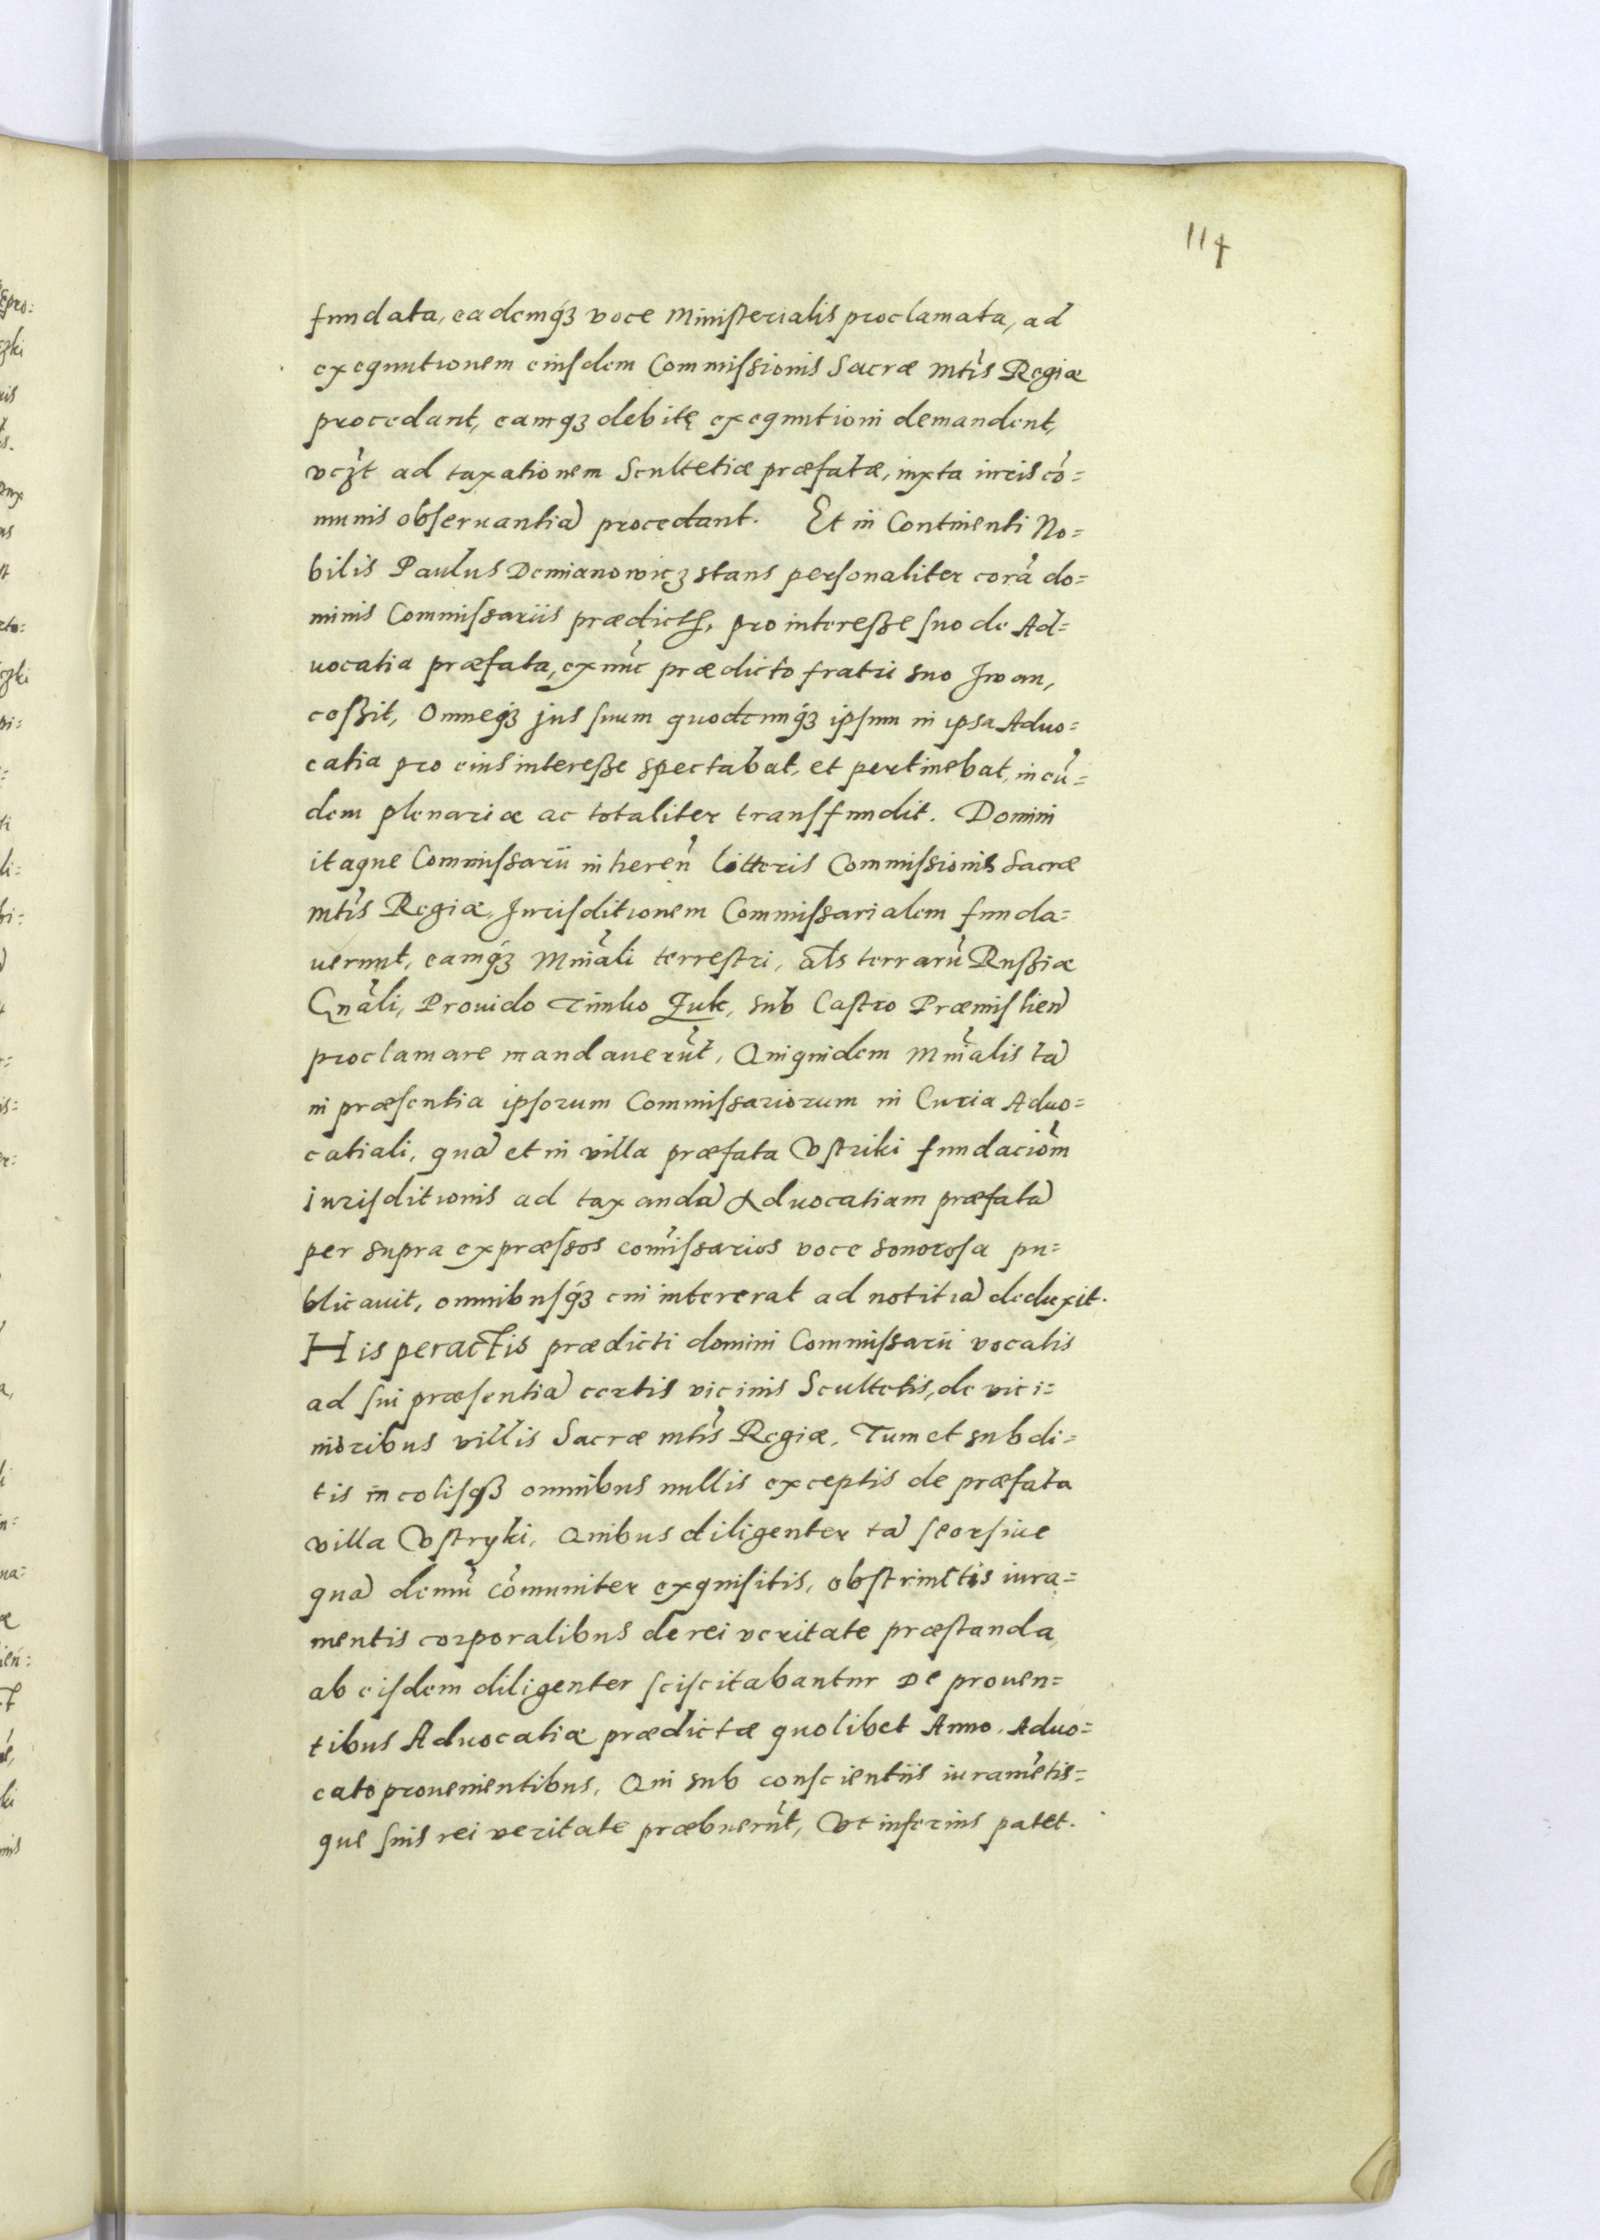 114
fundata, eademq́ȝ voce Ministerialis proclamata, ad
exequutionem eiusdem Commissionis Sacræ Mtis Regiæ
procedant, eamqȝ debitę exequutioni demandent,
vczt ad taxationem Scultetiæ præfatæ, iuxta iuris cō=
munis obseruantiā procedant. Et in Continenti No=
bilis Paulus Demianowicz stans personaliter corā do=
minis Commissariis prædictis, pro interesse suo de Ad=
uocatia præfata, exnūc prædicto fratri suo Iwan,
cessit, Omneq́ȝ jus suum quodcunq́ȝ ipsum in ipsa Aduo=
catia pro eius interesse spectabat, et pertinebat, in eū=
dem plenariæ ac totaliter transfundit. Domini
itaque Commissarii inheren̄ litteris Commissionis Sacræ
Mtis Regiæ, Jurisditionem Commissarialem funda=
uerunt, eamq́ȝ Mīnali terrestri, als terrarū Russiæ
Gnāli, Prouido Timko Zuk, sub Castro Præmislien̄
proclamare mandauerūt, Quiquidem Mīnalis tā
in præsentia ipsorum Commissariorum in Curia Aduo=
catiali, quā et in villa præfata Vstriki fundaciōm
iurisditionis ad taxandā Aduocatiam præfatā
per supra expræssos comissarios voce sonorosa pu=
blicauit, omnibusq́ȝ cui intererat ad notitiā deduxit.
His peractis prædicti domini Commissarii vocatis
ad sui præsentiā certis vicinis Scultetis, de vici=
nioribus villis Sacræ Mtis Regiæ, Tum et subdi=
tis incolisqȝ omnibus nullis exceptis de præfata
villa Vstryki, Quibus diligenter tā seorsiue
quā demū cōmuniter exquisitis, obstrinctis iura=
mentis corporalibus de rei veritate præstanda,
ab eisdem diligenter sciscitabantur De prouen=
tibus Aduocatiæ prædictæ quolibet Anno. Aduo=
cato prouenientibus, Qui sub conscientiis iuramētis=
que suis rei veritate præbuerūt, Vt inferius patet.